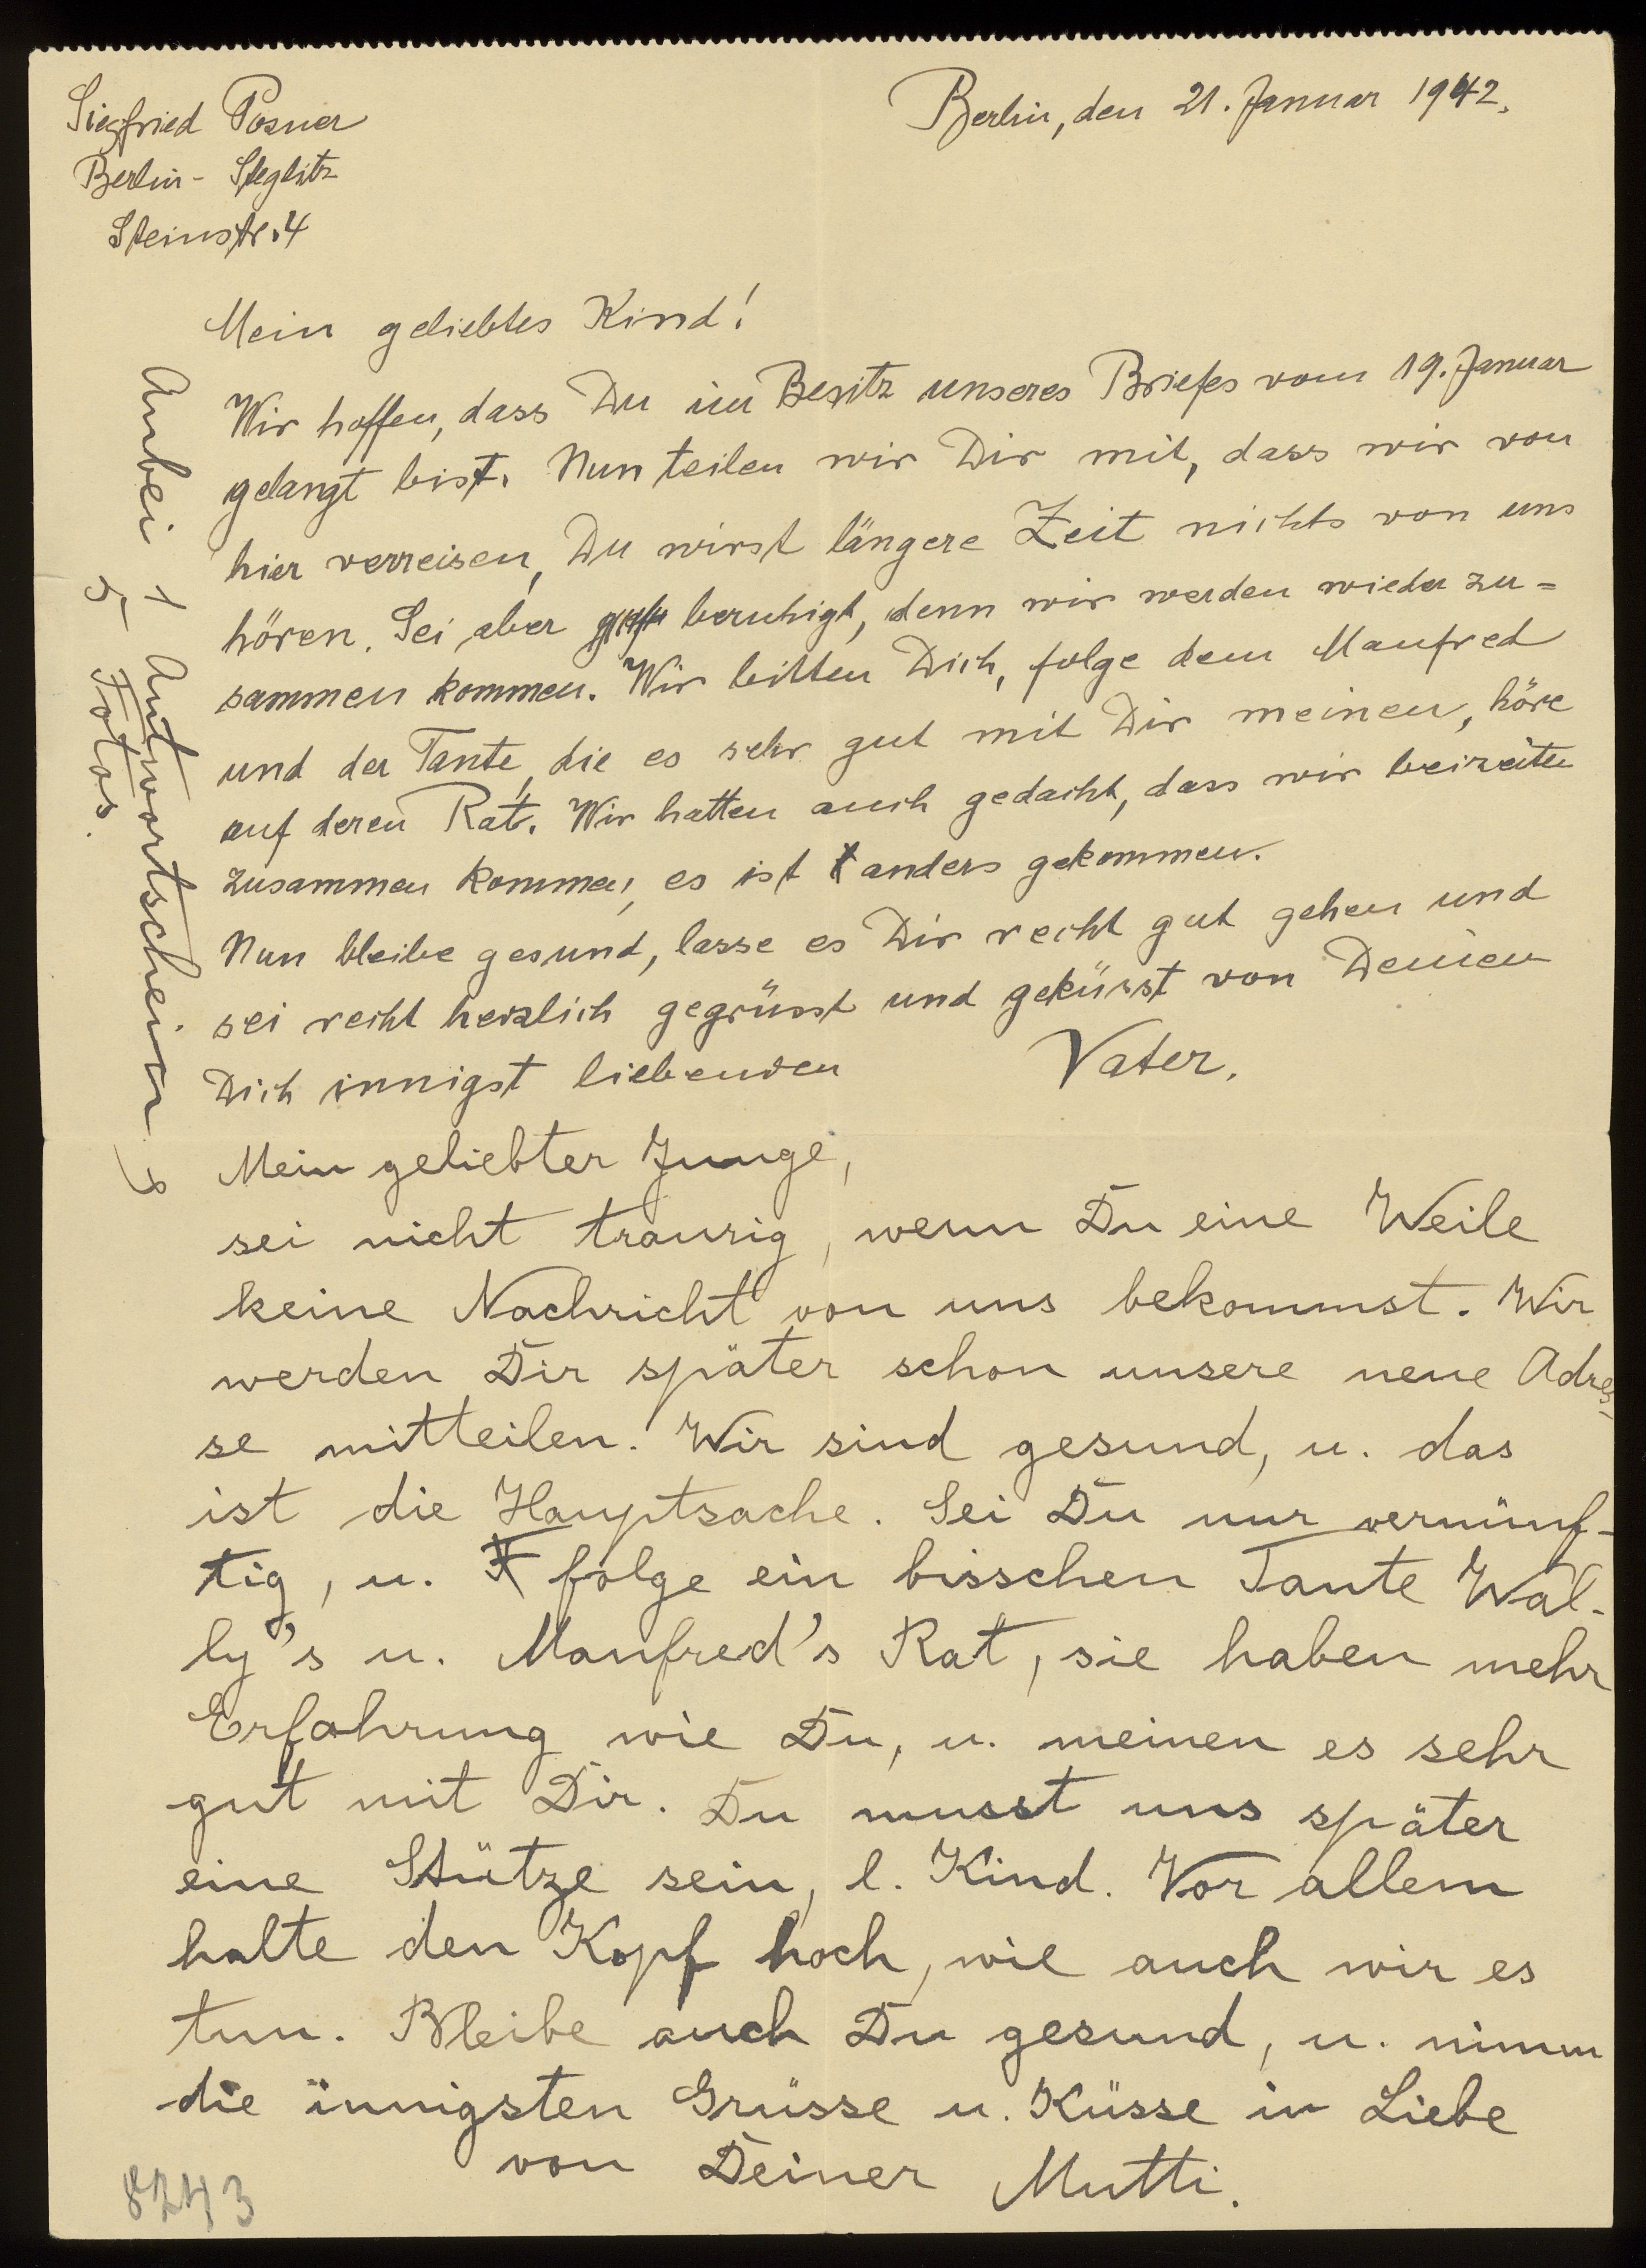 Siegfried Posner
Berlin - Steglitz
Steinstr. 4
Berlin, den 21. Januar 1942.
Mein geliebtes Kind!
Wir hoffen, dass Du im Besitz unseres Briefes vom 19. Januar
gelangt bist. Nun teilen wir Dir mit, dass wir von
hier verreisen, Du wirst längere Zeit nichts von uns
hören. Sei aber beruhigt, denn wir werden wieder zu=
sammen kommen. Wir bitten Dich, folge dem Manfred
und der Tante, die es sehr gut mit Dir meinen, höre
auf deren Rat. Wir hatten auch gedacht, dass wir beizeiten
zusammen kommen, es ist anders gekommen.
Nun bleibe gesund, lasse es Dir recht gut gehen und
sei recht herzlich gegrüsst und geküsst von Deinen
Dich innigst liebenden Vater.
Mein geliebter Junge,
sei nicht traurig, wenn Du eine Weile
keine Nachricht von uns bekommst. Wir
werden Dir später schon unsere neue Adres-
se mitteilen. Wir sind gesund, u. das
ist die Hauptsache. Sei Du nur vernünf-
tig, u. folge ein bisschen Tante Wal-
ly's u. Manfred's Rat, sie haben mehr
Erfahrung wie Du, u. meinen es sehr
gut mit Dir. Du musst uns später
eine Stütze sein, l. Kind. Vor allem
halte den Kopf hoch, wie auch wir es
tun. Bleibe auch Du gesund, u. nimm
die innigsten Grüsse u. Küsse in Liebe
von Deiner Mutti.
Anbei 1 Antwortschein,
5 Fotos.
8243